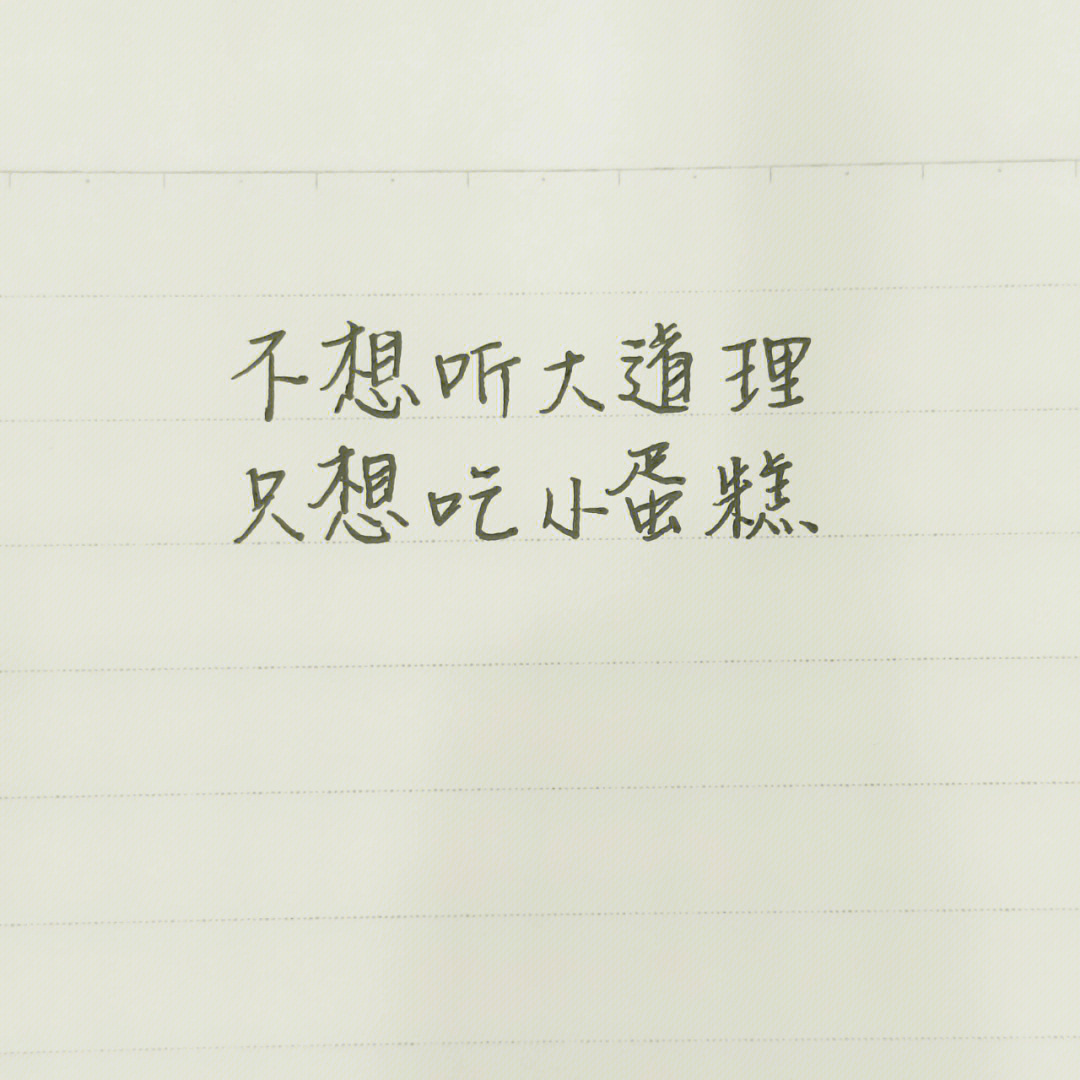 不想听大道理
只想吃小蛋糕